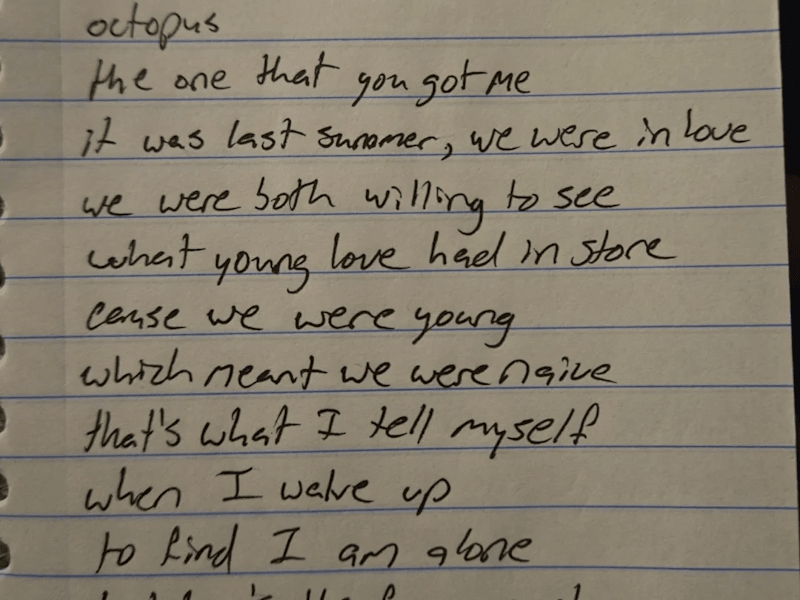 octopus
the one that you got me
it was last summer, we were in love
we were both willing to see
what young love had in store
cause we were young
which meant we were naive
that's what I tell myself
when I wake up
to find I am alone